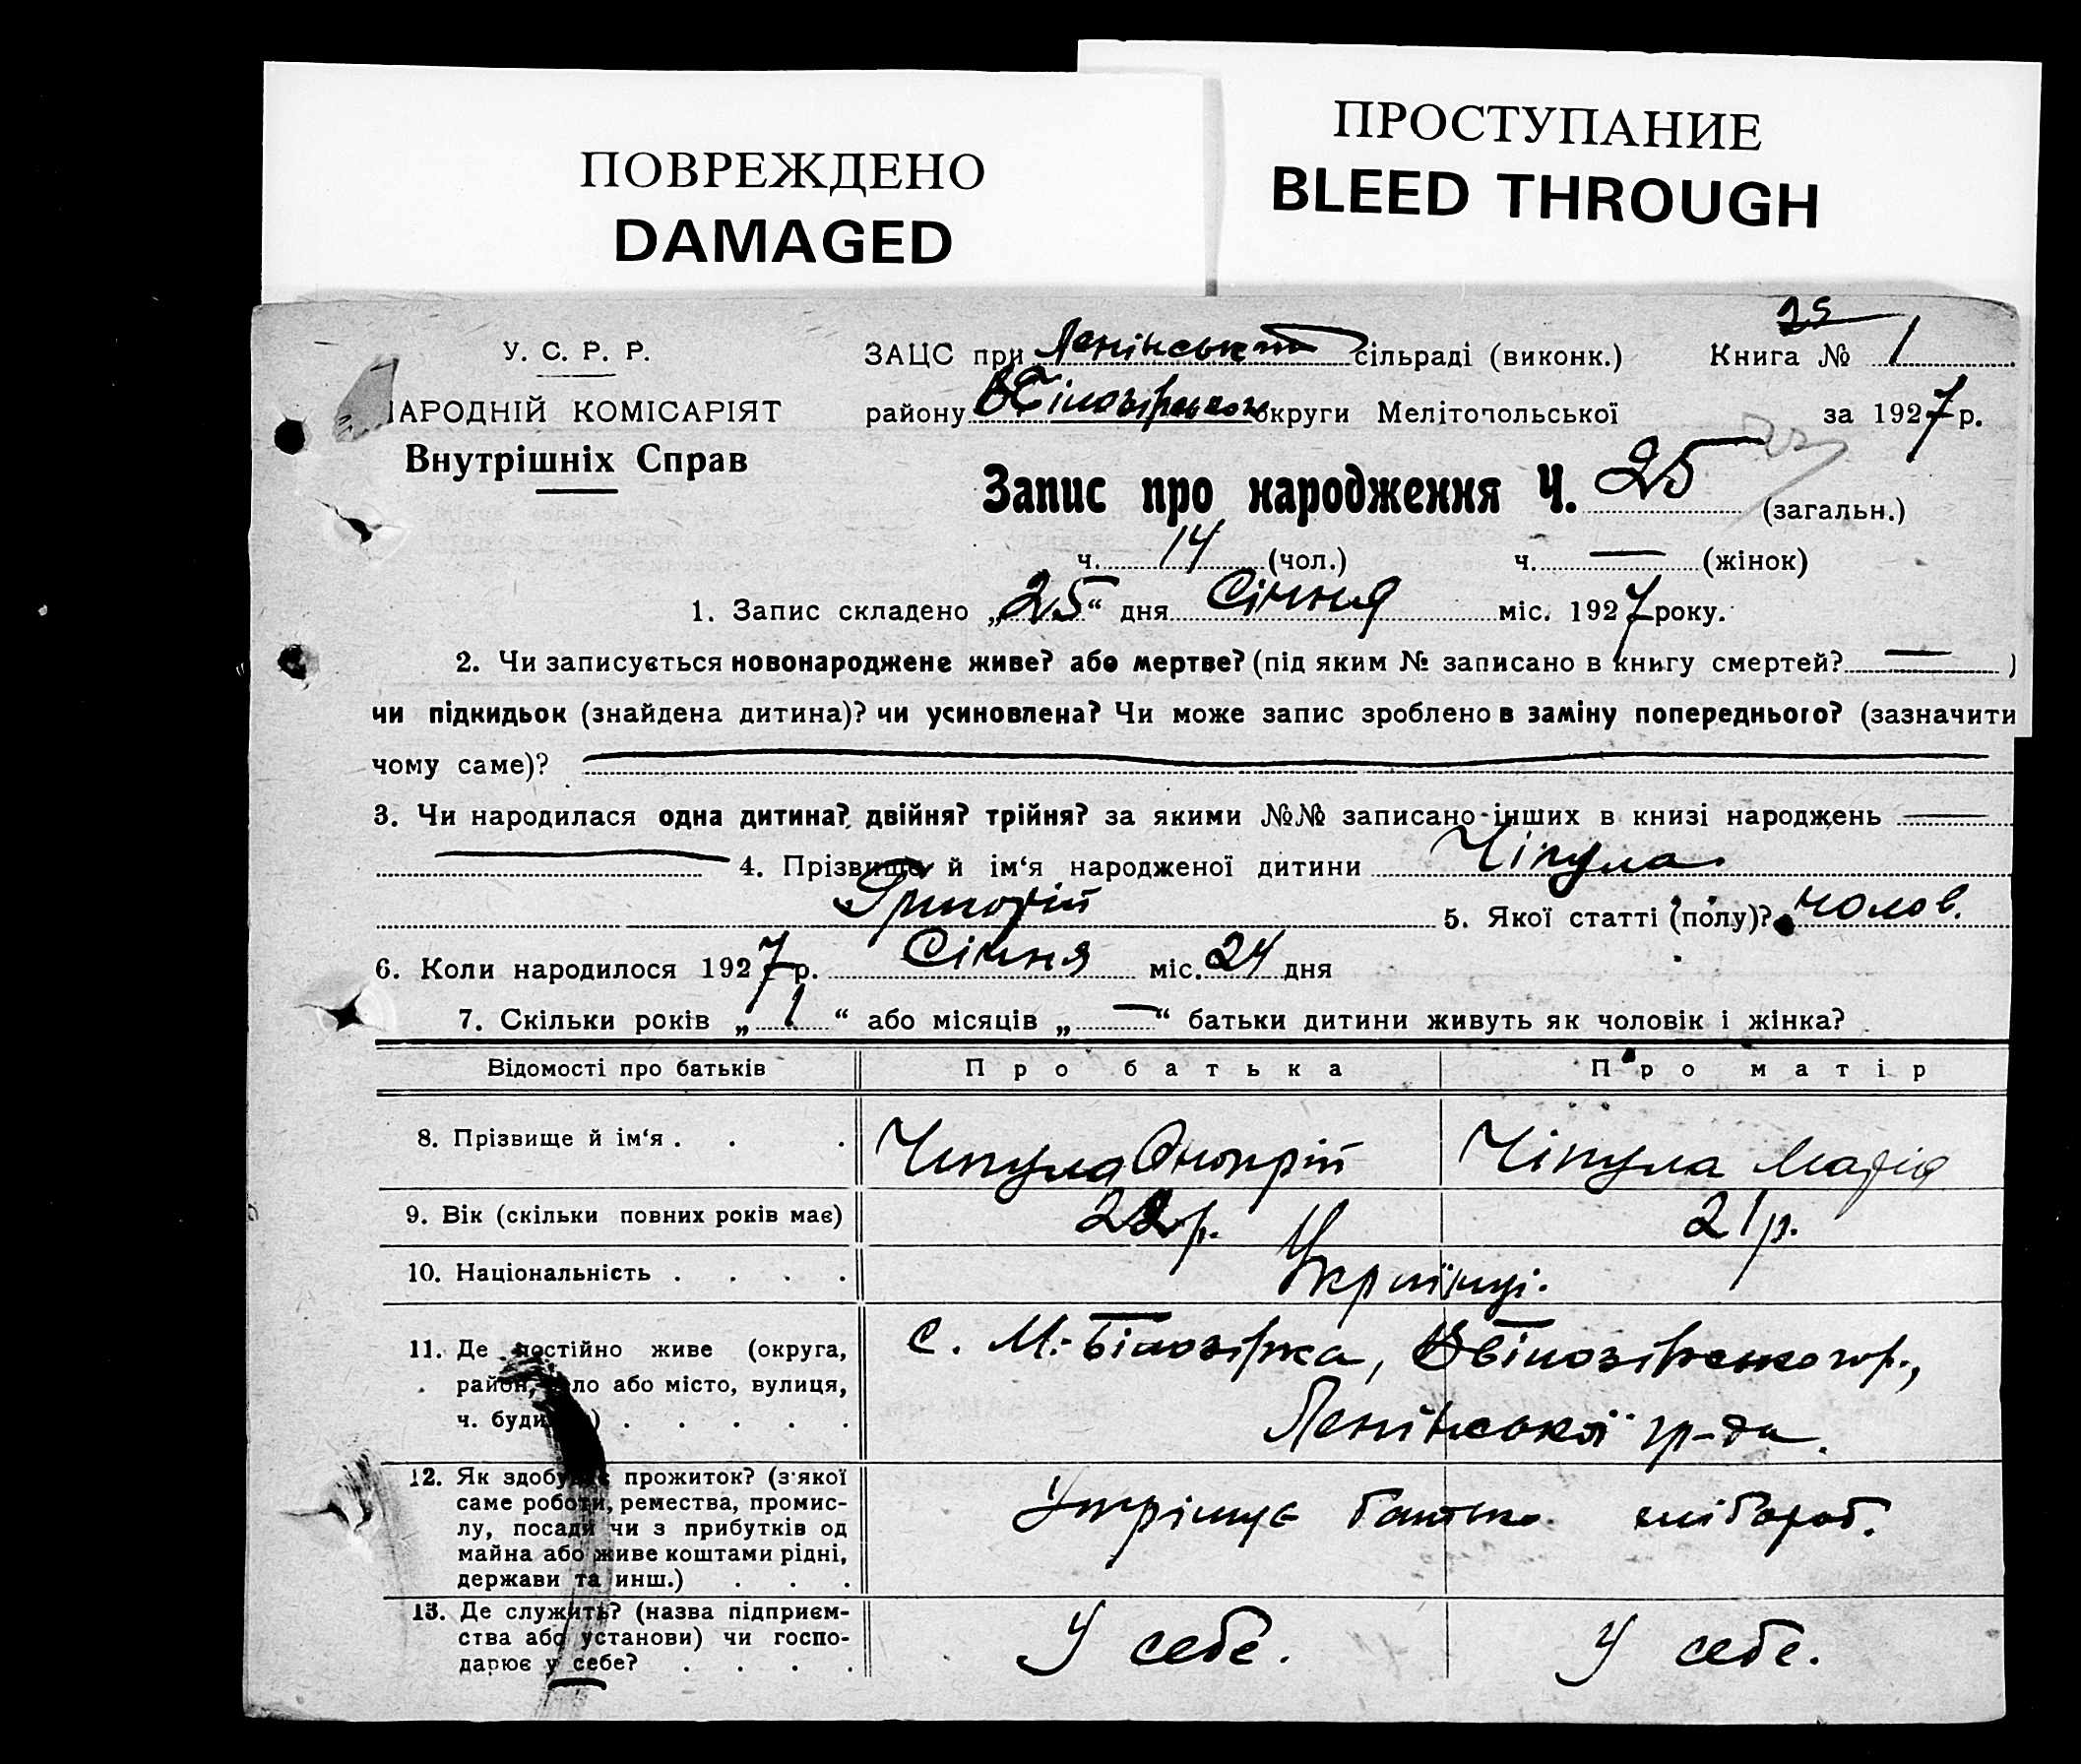 ПОВРЕЖДЕНО
DAMAGED
ПРОСТУПАНИЕ
BLEED THROUGH
25
У. С. Р. Р.
ЗАЦС при Ленінській сільраді (виконк.) Книга № 1
АРОДНІЙ КОМІСАРІЯТ
району ВБілозірської округи Мелітопольської за 1927 р.
Внутрішніх Справ
Запис про народження Ч. 25 (загальн.)
ч. 14 (чол.) ч. — (жінок)
1. Запис складено „25“ дня Січня міс. 1927 року.
2. Чи записується новонароджене живе? або мертве? (під яким № записано в книгу смертей? — )
чи підкидьок (знайдена дитина)? чи усиновлена? Чи може запис зроблено в заміну попереднього? (зазначити
чому саме)? —
3. Чи народилася одна дитина? двійня? трійня? за якими №№ записано інших в книзі народжень —
— 4. Прізвище й ім‘я народженої дитини Чіпула
Григорій 5. Якої статті (полу)? чолов.
6. Коли народилося 1927 р. Січня міс. 24 дня
7. Скільки років „1“ або місяців „—“ батьки дитини живуть як чоловік і жінка?
Відомості про батьків Про батька Про матір
8. Прізвище й ім‘я . . . Чипула Онопрій Чіпула Марія
9. Вік (скільки повних років має) 22 р. 21 р.
10. Національність . . . . Українці.
11. Де постійно живе (округа, С. М.-Білозірка, ВБілозірського р.,
район, село або місто, вулиця,
ч. буди ) . . . . . Ленінської с/р-ди.
12. Як здобу є прожиток? (з‘якої
саме роботи, ремества, промис-
лу, посади чи з прибутків од Утрімує батько хлібороб.
майна або живе коштами рідні,
держави та инш.) . . .
13. Де служить? (назва підприєм-
ства або установи) чи госпо- У себе. У себе.
дарює у себе? . . . .